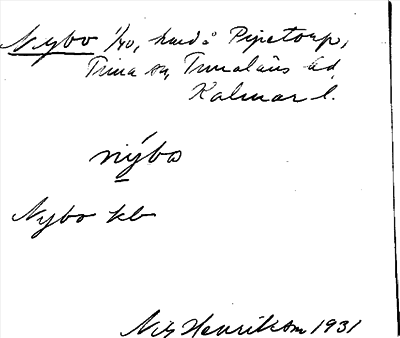 Nybo 1/40, hmd å Pipetorp,
Tuna sn, Tunaläns hd,
Kalmar l.
nýbo
Nybo kb
Nils Henrikson 1931